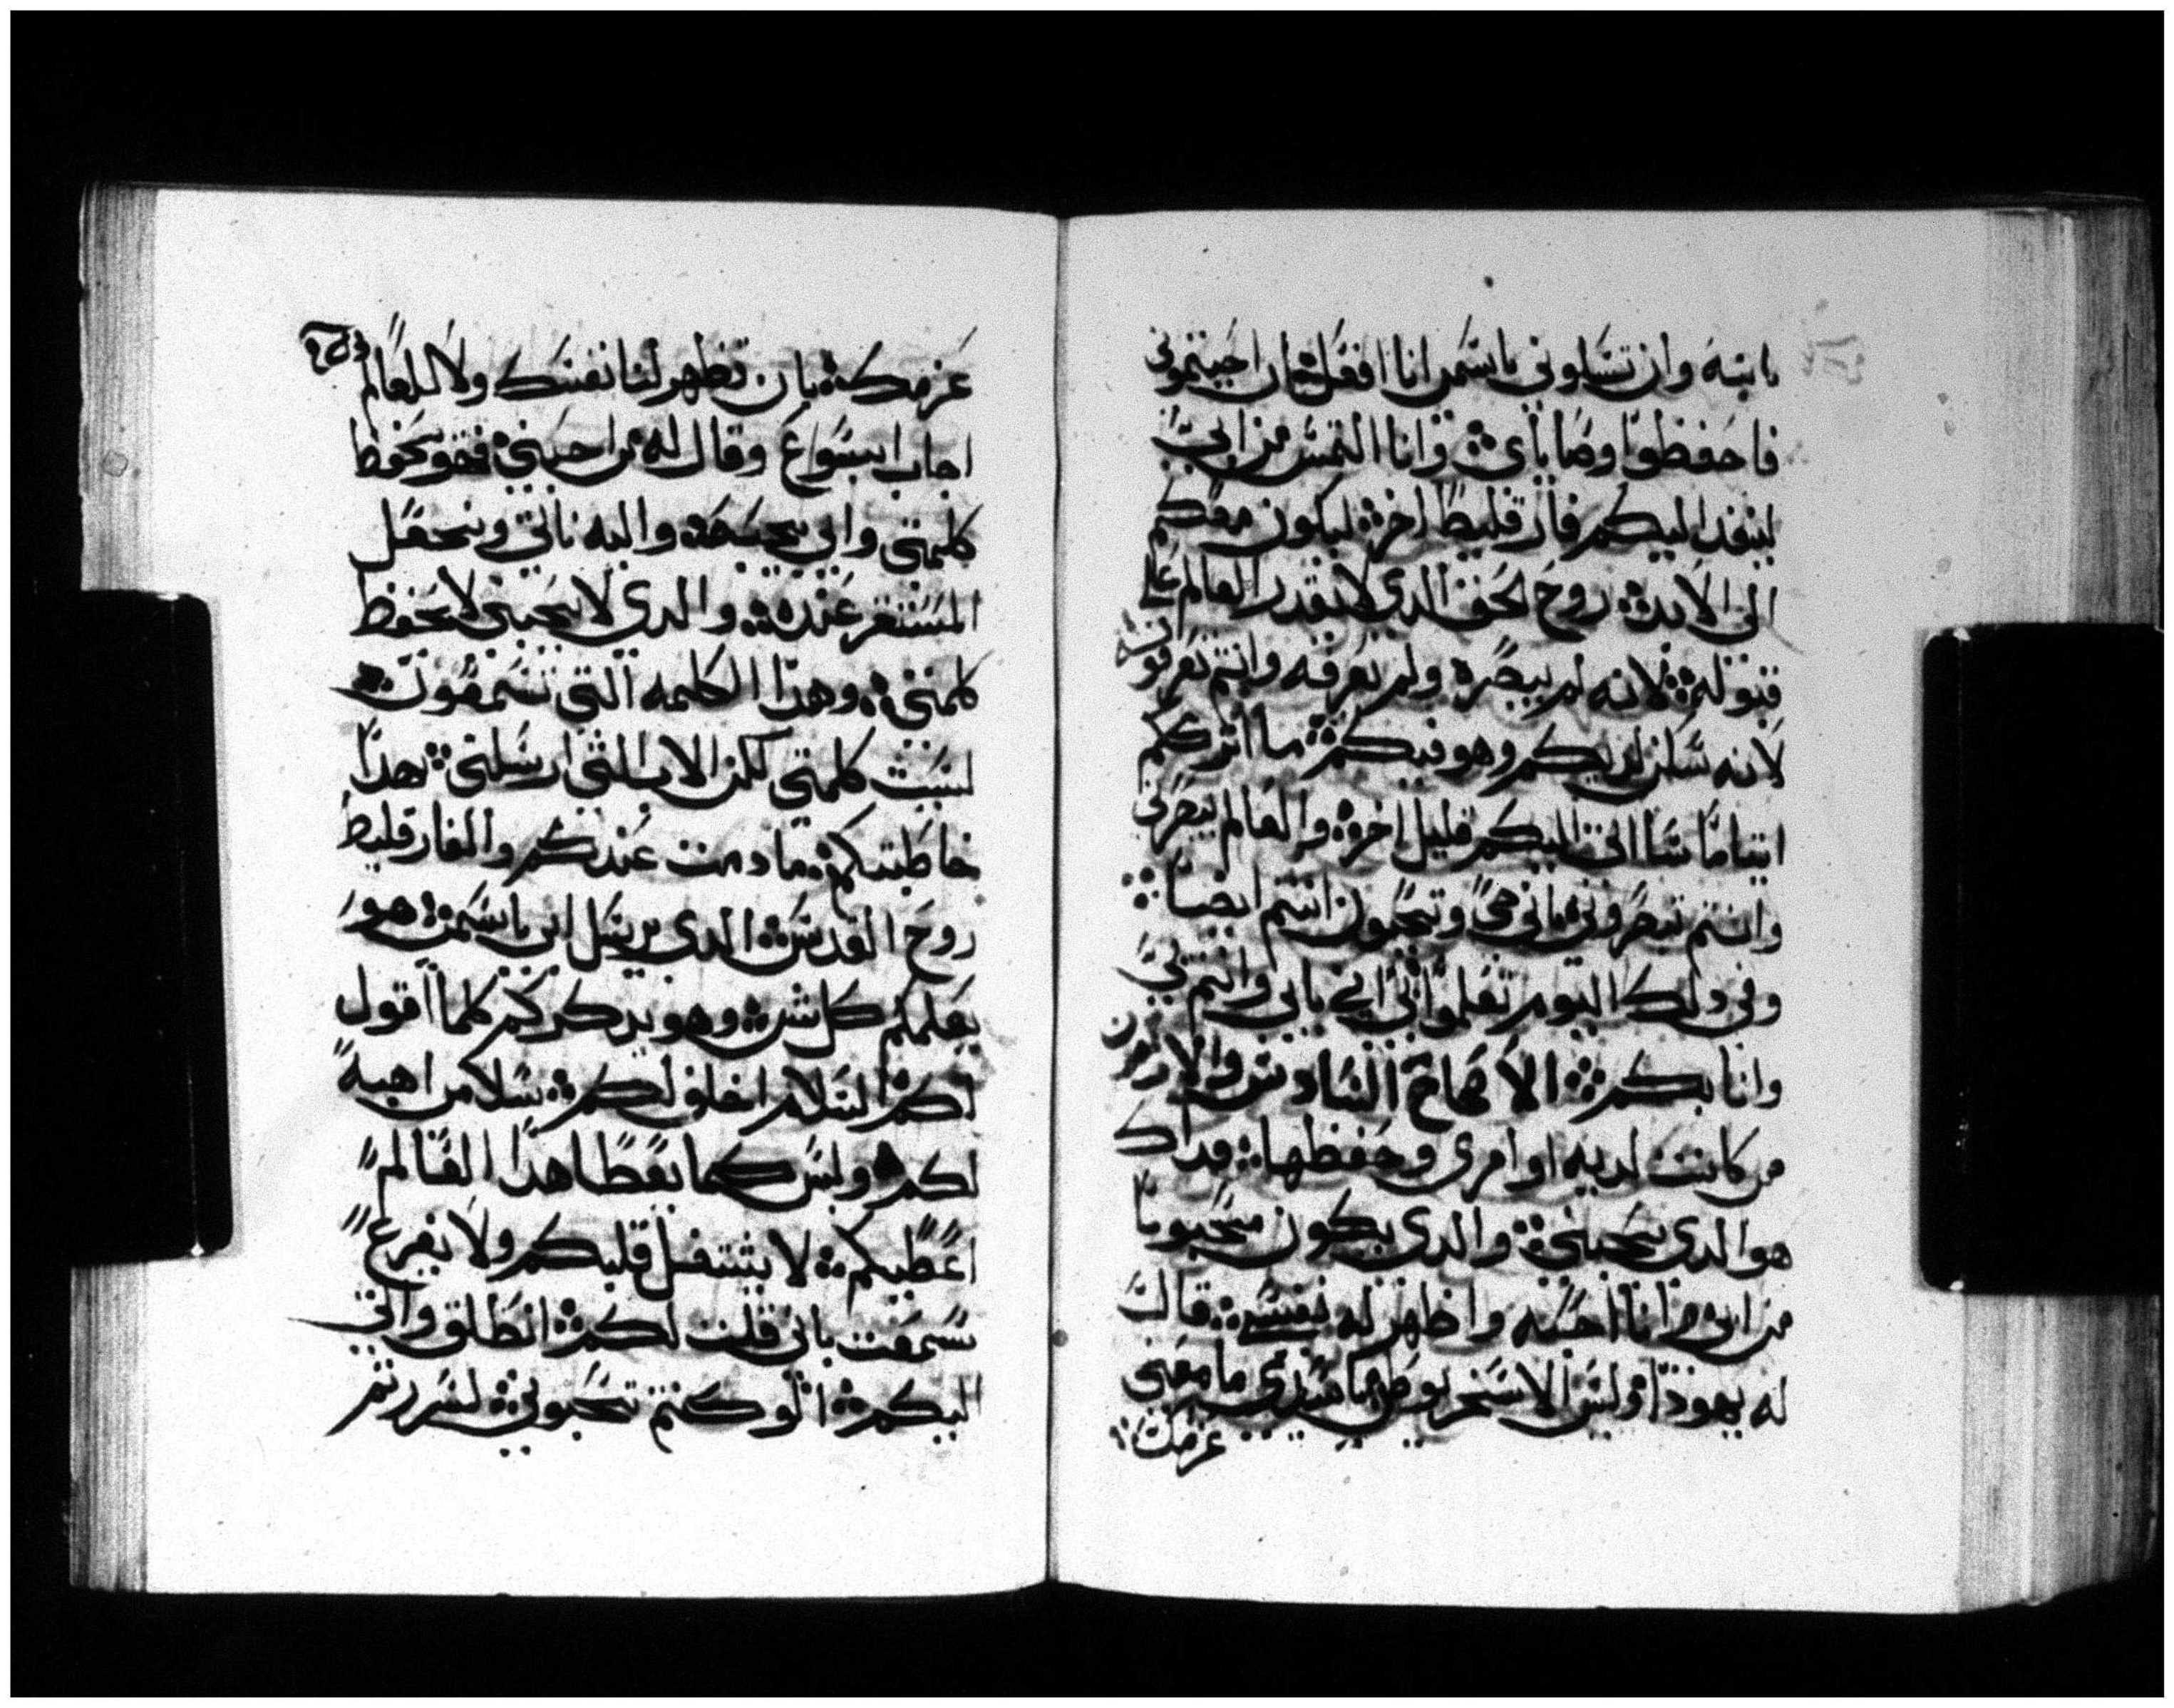 بابنه وان تسلوني باسمي انا افعل ان احببتموني
فاحفظوا وصاياي وانا التمس من ابي
لينفد اليكم فارقليط اخر ليكون معكم
الى الابد روح الحق الدي لا يقدر العالم على
قبوله لانه لم يبصره ولم يعرفه وانتم تعرفونه
لانه ساكن لديكم وهو فيكم ما اترككم
ايتاما سااتي اليكم قليل اخر والعالم يبصرني
وانتم تبصروني باني حي وتحيون انتم ايضا
وفي دلك اليوم تعلموا اني في ابي وانتم في
وانا بكم الاصحاح السادس والاربعون
من كانت لديه اوامري وحفظها فداك
هو الدي يحبني والدي يكون محبوبا
من ابي وانا احبه واظهر له نفسي قالت
له يهودا وليس الاسخريوطي يا سيدي ما معنى
عزمت
عزمك بان تظهر لنا نفسك ولا للعالم
اجاب ايسوع وقال له من احبني فهو يحفظ
كلمتي وابي يحبه واليه ناتي ونجعل
المستقر عنده والدي لا يحبني لا يحفظ
كلمتي وهدا الكلمه التي تسمعون
ليست كلمتي لكن الاب الدي ارسلني بهدا
خاطبتكم ما دمت عندكم والفارقليط
روح القدس الدي يرسل ابي باسمي هو
يعلمكم كل شي وهو يدكركم كلما اقول
لكم السلام اخلف لكم سلامي اهبه
لكم وليس كما يعطا هدا العالم
اعطيكم لا يشتغل قلبكم ولا يفزع
سمعت باني قلت لكم انطلق واتي
اليكم لو كنتم تحبوني لسررتم